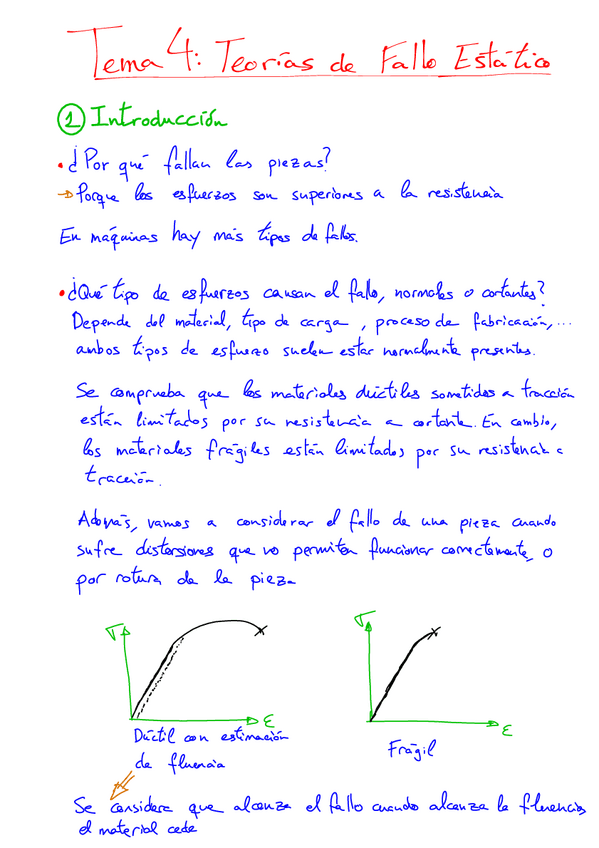 Tema 4: Teorías de Fallo Estático
① Introducción
• ¿Por qué fallan las piezas?
→ Porque los esfuerzos son superiores a la resistencia
En máquinas hay más tipos de fallos.
• ¿Qué tipo de esfuerzos causan el fallo, normales o cortantes?
Depende del material, tipo de carga, proceso de fabricación, ...
ambos tipos de esfuerzo suelen estar normalmente presentes.
Se comprueba que los materiales dúctiles sometidos a tracción
están limitados por su resistencia a cortante. En cambio,
los materiales frágiles están limitados por su resistencia a
tracción.
Además, vamos a considerar el fallo de una pieza cuando
sufre distorsiones que no permiten funcionar correctamente, o
por rotura de la pieza
σ
σ
ε
ε
Dúctil con estimación
de fluencia
Frágil
Se considera que alcanza el fallo cuando alcanza la fluencia,
el material cede